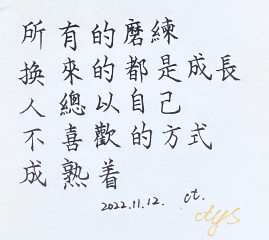 所有的磨練
換來的都是成長
人總以自己
不喜歡的方式
成熟着
2022.11.12. ct.
dys